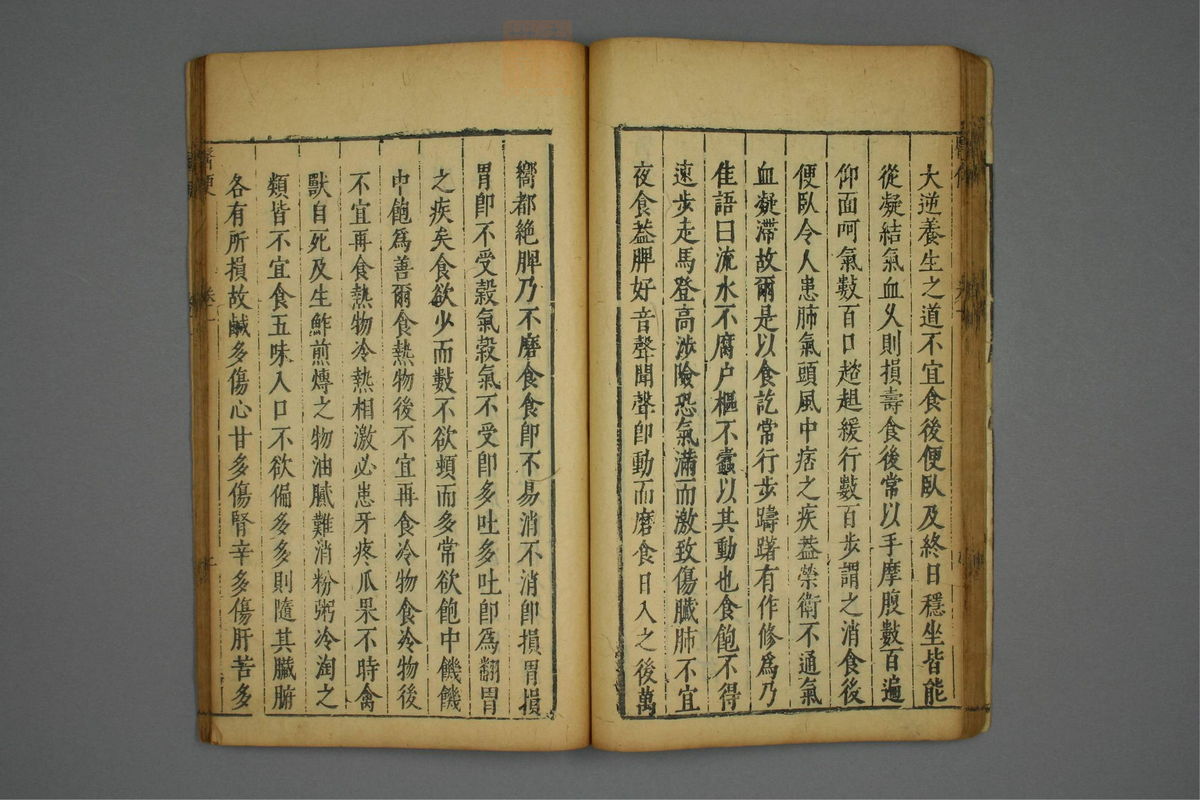 大逆養生之道不宜食後便臥及終日穩坐皆能
從凝結氣血乆則損壽食後常以手摩腹數百遍
仰面呵氣數百口趦趄緩行數百步謂之消食後
便臥令人患肺氣頭風中痞之疾葢榮衛不通氣
血凝滯故爾是以食訖常行步躊躇有作修爲乃
佳語曰流水不腐户樞不蠹以其動也食飽不得
速步走馬登高涉險恐氣滿而激致傷臟肺不宜
夜食葢脾好音聲聞聲卽動而磨食日入之後萬
嚮都絶脾乃不磨食食卽不易消不消卽損胃損
胃卽不受穀氣穀氣不受卽多吐多吐卽爲翻胃
之疾矣食欲少而數不欲頻而多常欲飽中饑饑
中飽爲善爾食熱物後不宜再食冷物食冷物後
不宜再食熱物冷熱相激必患牙疼瓜果不時禽
獸自死及生鮓煎煿之物油膩難消粉粥冷淘之
類皆不宜食五味入口不欲偏多多則隨其臟腑
各有所損故鹹多傷心甘多傷腎辛多傷肝苦多
卷一